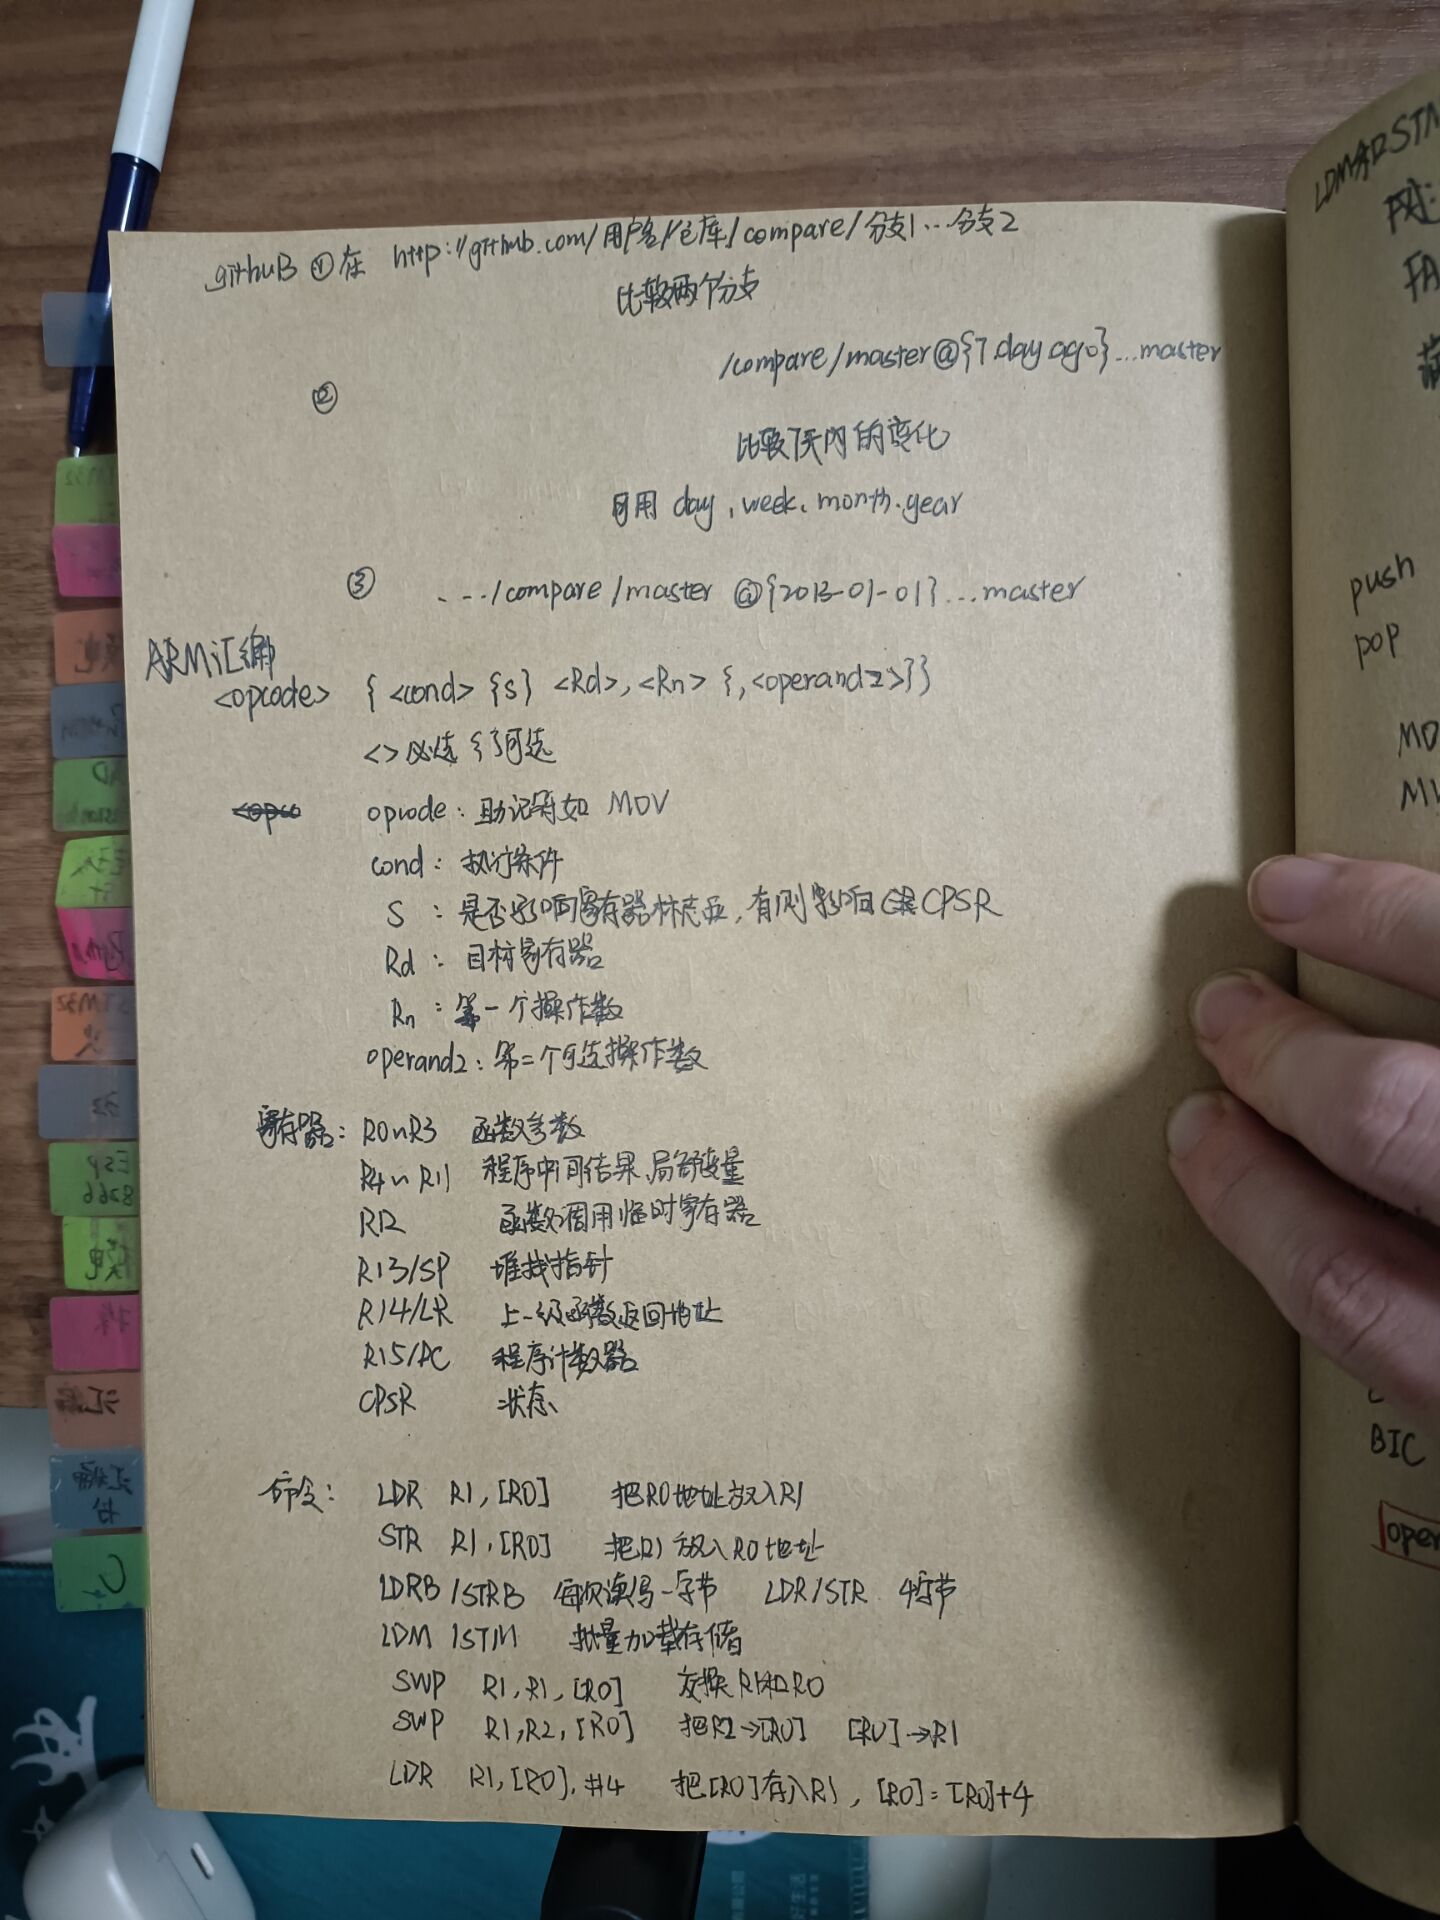 githuB ① 在 http://github.com/用户名/仓库/compare/分支1...分支2
比较两个分支
② /compare/master@{7.day.ago}...master
比较7天内的变化
可用 day, week, month.year
③ .../compare/master@{2013-01-01}...master
ARM汇编
<opcode> {<cond> {S} <Rd>, <Rn> {,<operand2>}}
<>必选 {}可选
<opco opcode: 助记符如 MOV
cond: 执行条件
S : 是否影响寄存器标志位, 有则影响 CPSR
Rd : 目标寄存器
Rn : 第一个操作数
operand2: 第二个可选操作数
寄存器: R0~R3 函数参数
R4~R11 程序中间结果、局部变量
R12 函数调用临时寄存器
R13/SP 堆栈指针
R14/LR 上一级函数返回地址
R15/PC 程序计数器
CPSR 状态
命令: LDR R1, [R0] 把R0地址放入R1
STR R1, [R0] 把R1放入R0地址
LDRB/STRB 每次读写一字节 LDR/STR 4字节
LDM/STM 批量加载存储
SWP R1, R1, [R0] 交换R1和R0
SWP R1, R2, [R0] 把R2→[R0] [R0]→R1
LDR R1, [R0], #4 把[R0]存入R1, [R0]=[R0]+4
LDM和STM
push
pop
BIC